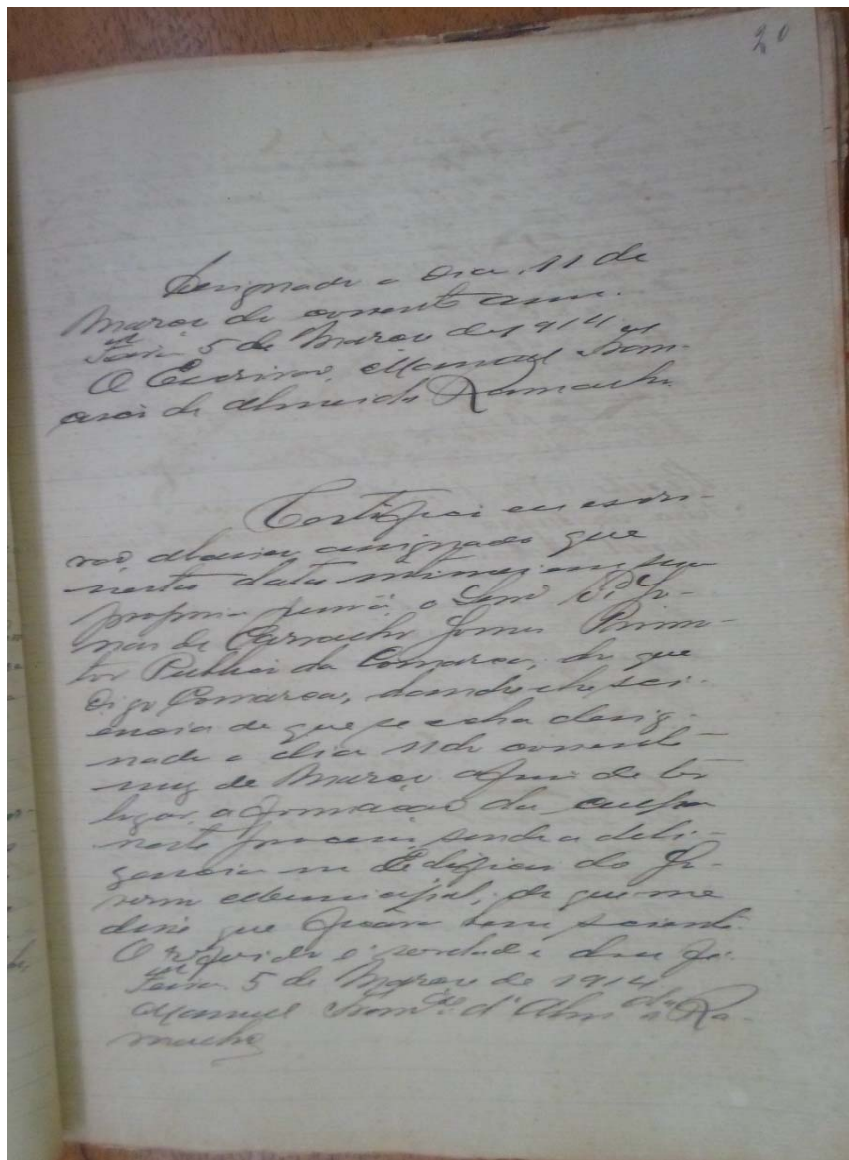 20
Designado o dia 11 de
Março do corrente anno.
5 de Março de 1914
O Escrivão, Manoel Fran-
cisco de Almeida Ramacho
Certifico eu escri-
vão, abaixo assignado que
nesta data intimei em sua
propria pessoa, o Senr
de Carvalho Gomes Promo-
tor Publico da Comarca, do que
digo Comarca, dando-lhe sci-
encia de que se acha desig-
nado o dia 11 do corrente
mez de Março afim de ter
logar a formação da culpa
neste processo, sendo a deli-
gencia no Edificio do Fo-
rum Municipal, do que me
disse que ficára bem sciente.
O referido é verdade e dou fé.
5 de Março de 1914
Manoel d'Almda Ra-
macho